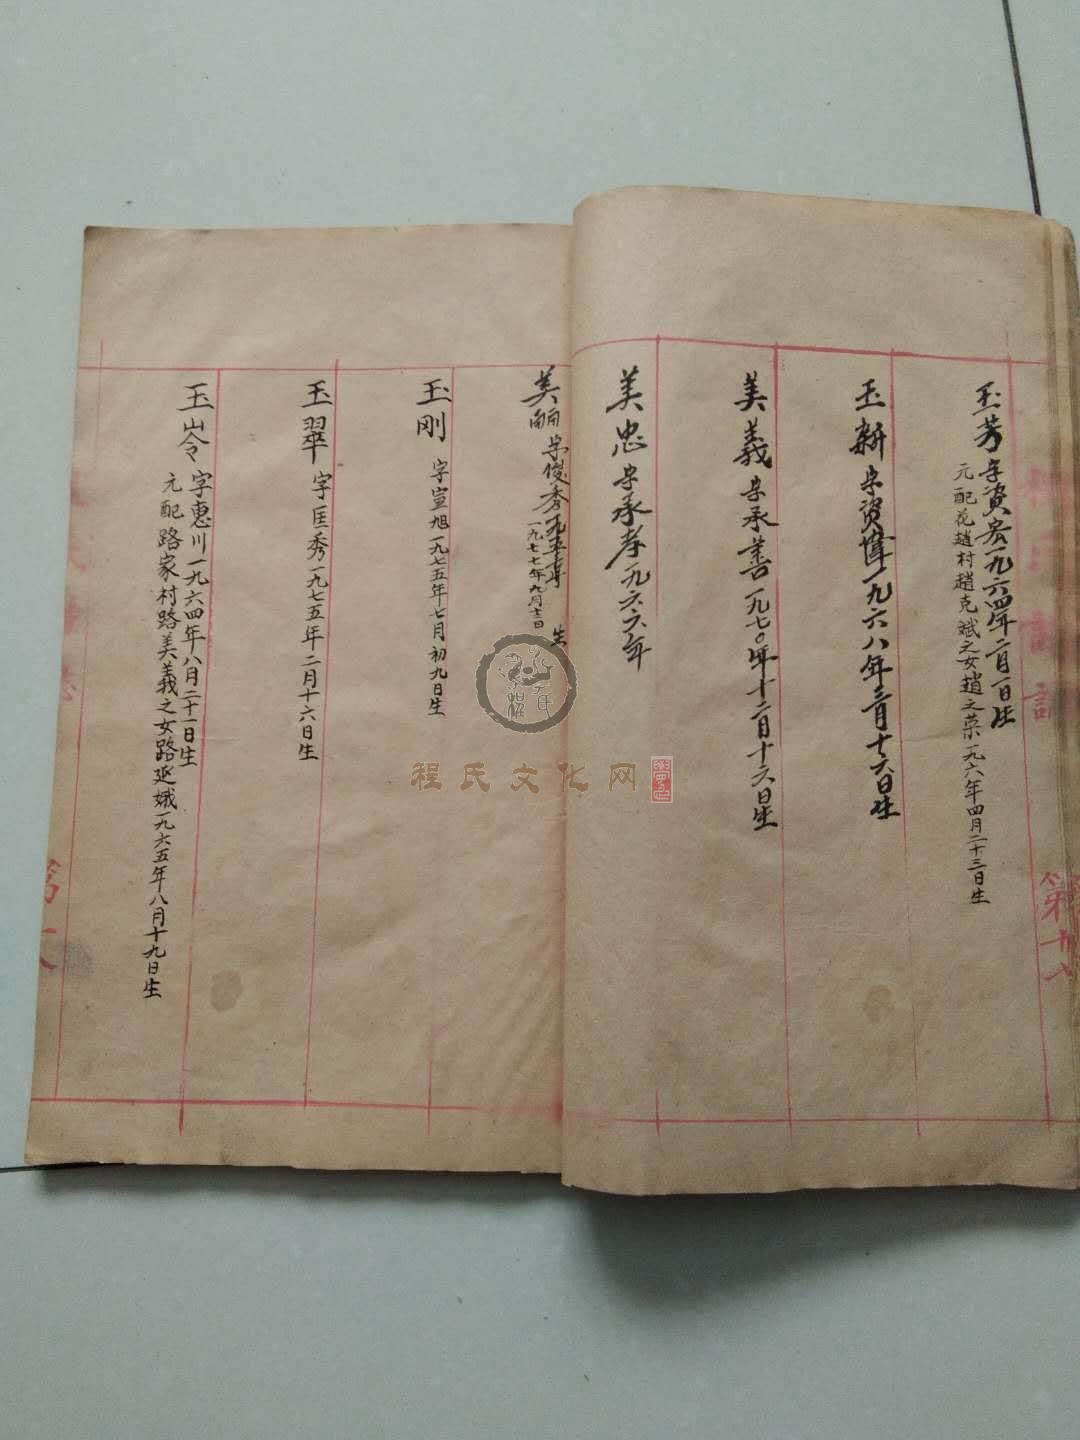 玉芳 字資宏一九六四年二月一日生
元配花趙村趙克斌之女趙之菜一九六年四月二十三日生
玉新 字資偉一九六八年三月十六日生
美義 字承善一九七〇年十二月十六日生
美忠 字承孝一九六六年
美麗 字俊秀
一九七七年九月十三日
生
玉刚 字宣旭一九七五年七月初九日生
玉翠 字匡秀一九七五年二月十六日生
玉岺 字惠川一九六四年八月二十一日生
元配 路家村路美義之女路延娥一九六五年八月十九日生
程氏文化网